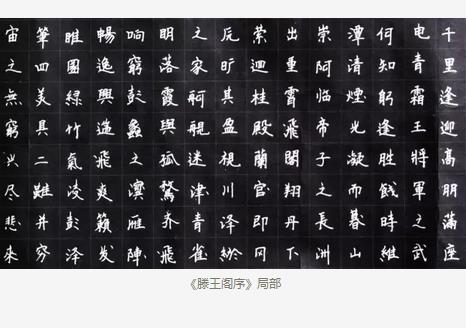 千里逢迎高朋滿座
电青霜王將軍之武
何知躬逢胜餞時維
潭清煙光凝而暮山
崇阿临帝子之長洲
出重霄飛閣翔丹下
萦迴桂殿蘭宫即冈
原旷其盈視川泽紆
之家舸艦迷津青雀
明落霞與孤鶩齐飛
响窮彭蠡之濱雁陣
暢逸興遄飛爽籟发
睢園綠竹氣凌彭泽
筆四美具二難并穷
宙之無窮興尽悲来
《滕王阁序》局部